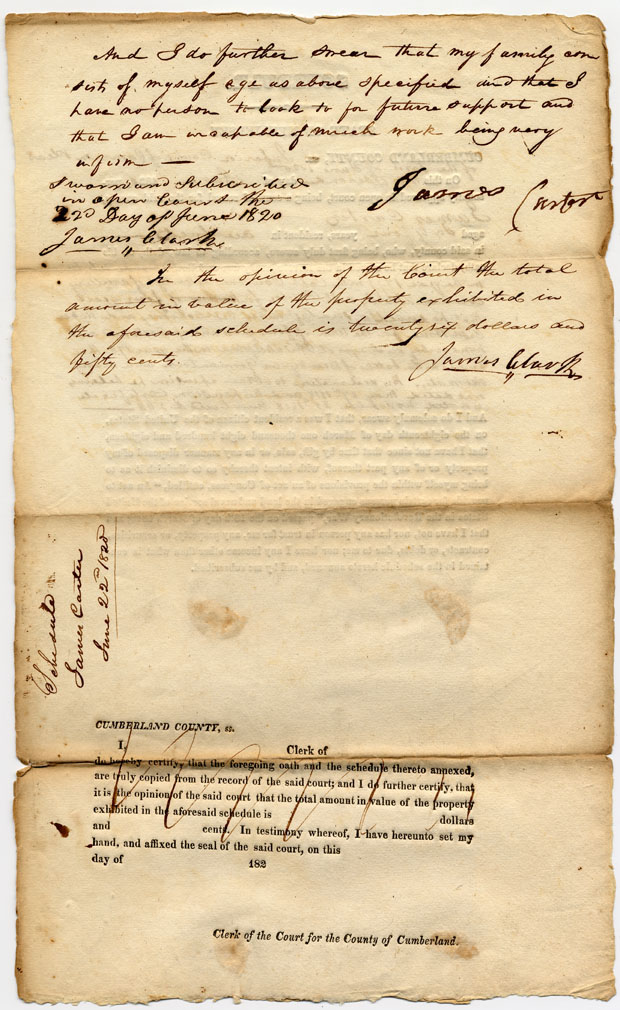 And I do further swear that my family con
sists of myself age as above specified and that I
have no person to look to for future support and
that I am incapable of much work being very
infirm —
Sworn and Subscribed
in open Court the
22d Day of June 1820
James Clark
James Carter
In the opinion of the Court the total
amount in value of the property exhibited in
the aforesaid schedule is twenty six dollars and
fifty cents.
James Clark
Schedule
James Carter
June 22d 1820
CUMBERLAND COUNTY, ss.
I, Clerk of
do hereby certify, that the foregoing oath and the schedule thereto annexed,
are truly copied from the record of the said court; and I do further certify, that
it is the opinion of the said court that the total amount in value of the property
exhibited in the aforesaid schedule is dollars
and cents. In testimony whereof, I have hereunto set my
hand, and affixed the seal of the said court, on this
day of 182
Clerk of the Court for the County of Cumberland.